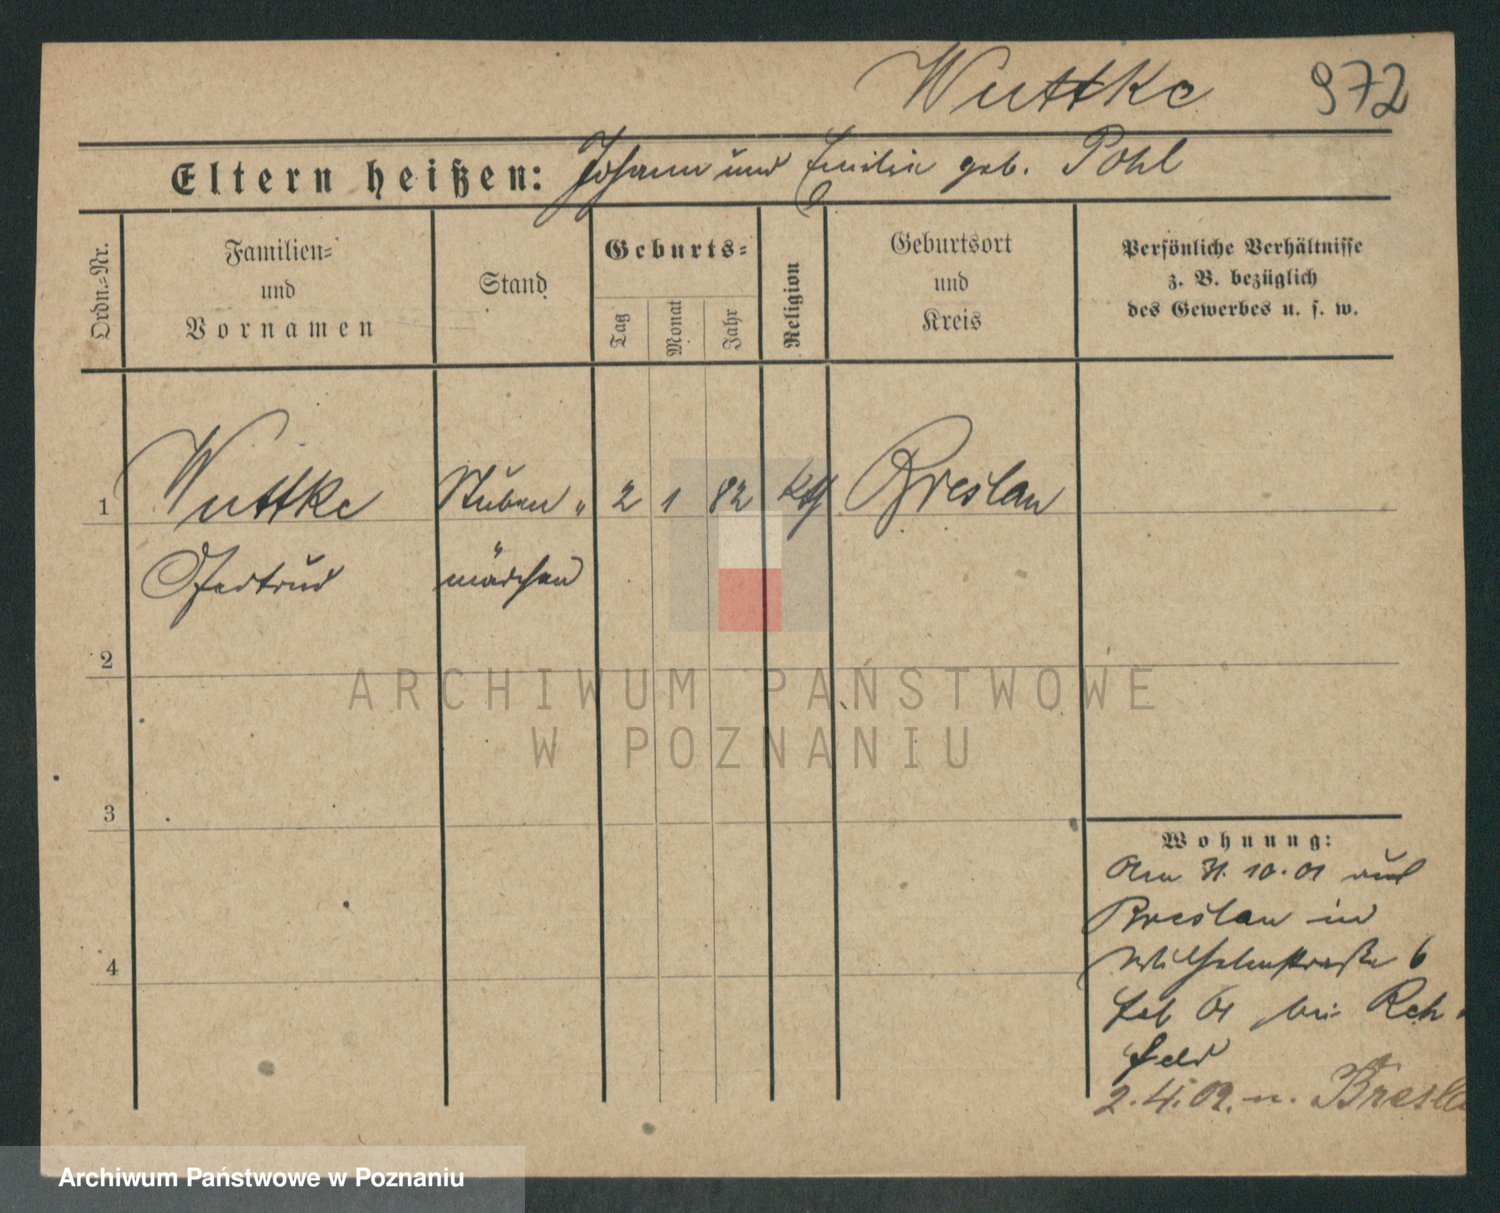 Wuttke 972
Eltern heißen: Johann und Emilie geb. Pohl
Ordn.-Nr.
Familien-
und
Vornamen
Stand
Geburts-
Tag
Monat
Jahr
Religion
Geburtsort
und
Kreis
Persönliche Verhältnisse
z. B. bezüglich
des Gewerbes u. s. w.
1 Wuttke Stuben- 2 1 82 kth Breslau
Gertrud mädchen
2
ARCHIWUM PAŃSTWOWE
W POZNANIU
3
Wohnung:
Am 31.10.01 aus
Breslau in
Wilhelmstraße 6
bei Reh-
feld
4
2.4.02. n. Bresla
Archiwum Państwowe w Poznaniu